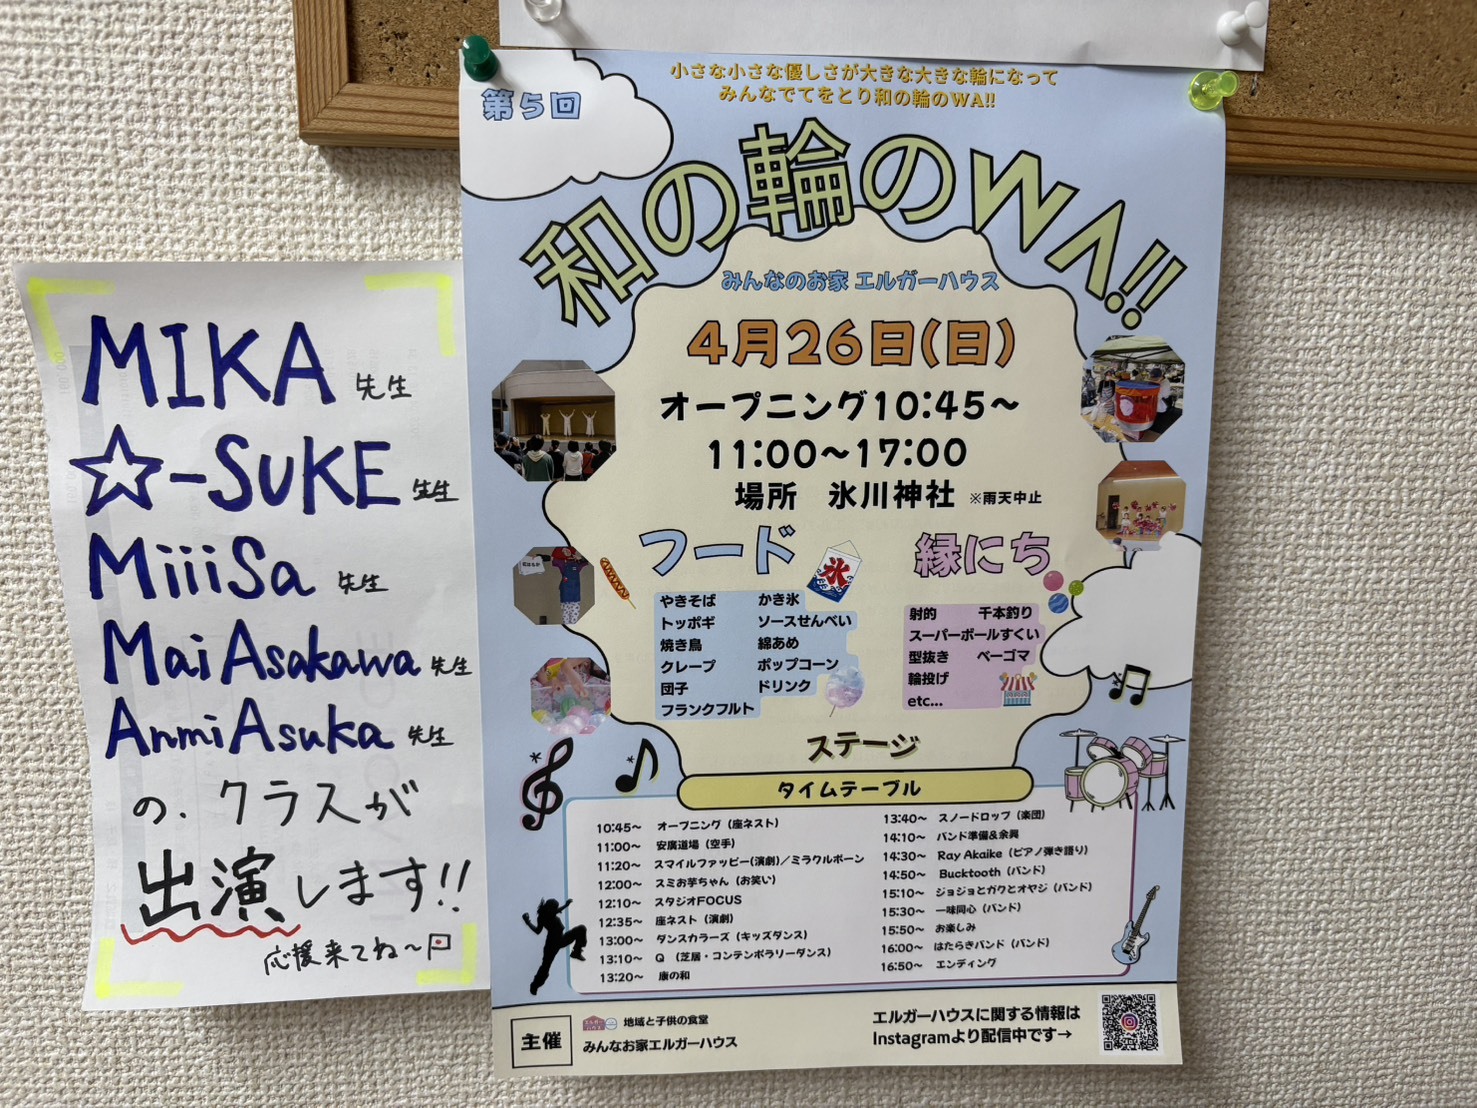 MIKA 先生
☆-SUKE 先生
MiiiSa 先生
Mai Asakawa 先生
Anmi Asuka 先生
の、クラスが
出演します!!
応援来てね〜
小さな小さな優しさが大きな大きな輪になって
みんなでてをとり和の輪のWA!!
第5回
和の輪のWA!!
みんなのお家 エルガーハウス
4月26日(日)
オープニング10:45〜
11:00〜17:00
場所 氷川神社 ※雨天中止
フード
氷
やきそば
トッポギ
焼き鳥
クレープ
団子
フランクフルト
かき氷
ソースせんべい
綿あめ
ポップコーン
ドリンク
縁にち
射的 千本釣り
スーパーボールすくい
型抜き ベーゴマ
輪投げ
etc...
ステージ
タイムテーブル
10:45〜 オープニング（座ネスト）
11:00〜 安廣道場（空手）
11:20〜 スマイルファッピー(演劇)／ミラクルボーン
12:00〜 スミお芋ちゃん（お笑い）
12:10〜 スタジオFOCUS
12:35〜 座ネスト（演劇）
13:00〜 ダンスカラーズ（キッズダンス）
13:10〜 Q （芝居・コンテンポラリーダンス）
13:20〜 康の和
13:40〜 スノードロップ（楽団）
14:10〜 バンド準備&余興
14:30〜 Ray Akaike（ピアノ弾き語り）
14:50〜 Bucktooth（バンド）
15:10〜 ジョジョとガクとオヤジ（バンド）
15:30〜 一味同心（バンド）
15:50〜 お楽しみ
16:00〜 はたらきバンド（バンド）
16:50〜 エンディング
主催
地域と子供の食堂
みんなお家エルガーハウス
エルガーハウスに関する情報は
Instagramより配信中です→